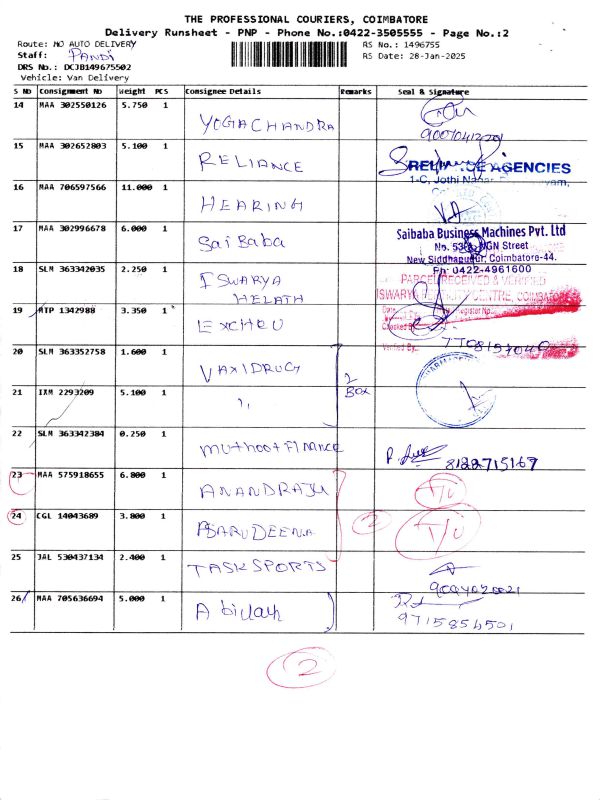 THE PROFESSIONAL COURIERS, COIMBATORE
Delivery Runsheet - PNP - Phone No.:0422-3505555 - Page No.:2
Route: MO AUTO DELIVERY
RS No.: 1496755
Staff: PANDI
RS Date: 28-Jan-2025
DRS No.: DCJB149675502
Vehicle: Van Delivery
S NO Consignment No Weight PCS Consignee Details Remarks Seal & Signature
14 MAA 302550126 5.750 1 YOGACHANDRA
15 MAA 302652803 5.100 1 RELIANCE RELIANCE AGENCIES
1-C, Jothi
16 MAA 706597566 11.000 1 HEARING VA
17 MAA 302996678 6.000 1 Sai Baba Saibaba Business Machines Pvt. Ltd
NGN Street
New Siddhapudur, Coimbatore-44.
Ph: 0422-4961600
18 SLM 363342035 2.250 1 ISWARYA HELATH PARCEL RECEIVED & VERIFIED
ISWARYA CENTRE, COIMBATORE
19 RTP 1342988 3.350 1
Date
Register No
Checked B
Verified By
20 SLM 363352758 1.600 1 VAXIDRUG 2 BOX
21 IXM 2293209 5.100 1 ,,
22 SLM 363342384 0.250 1 muthoot FINANCE 8122715167
23 MAA 575918655 6.800 1 ANANDRAJU T/U
24 CGL 14043689 3.800 1 2 T/U
25 JAL 530437134 2.400 1 TASKSPORTS
26 MAA 705636694 5.000 1 9715856501
2